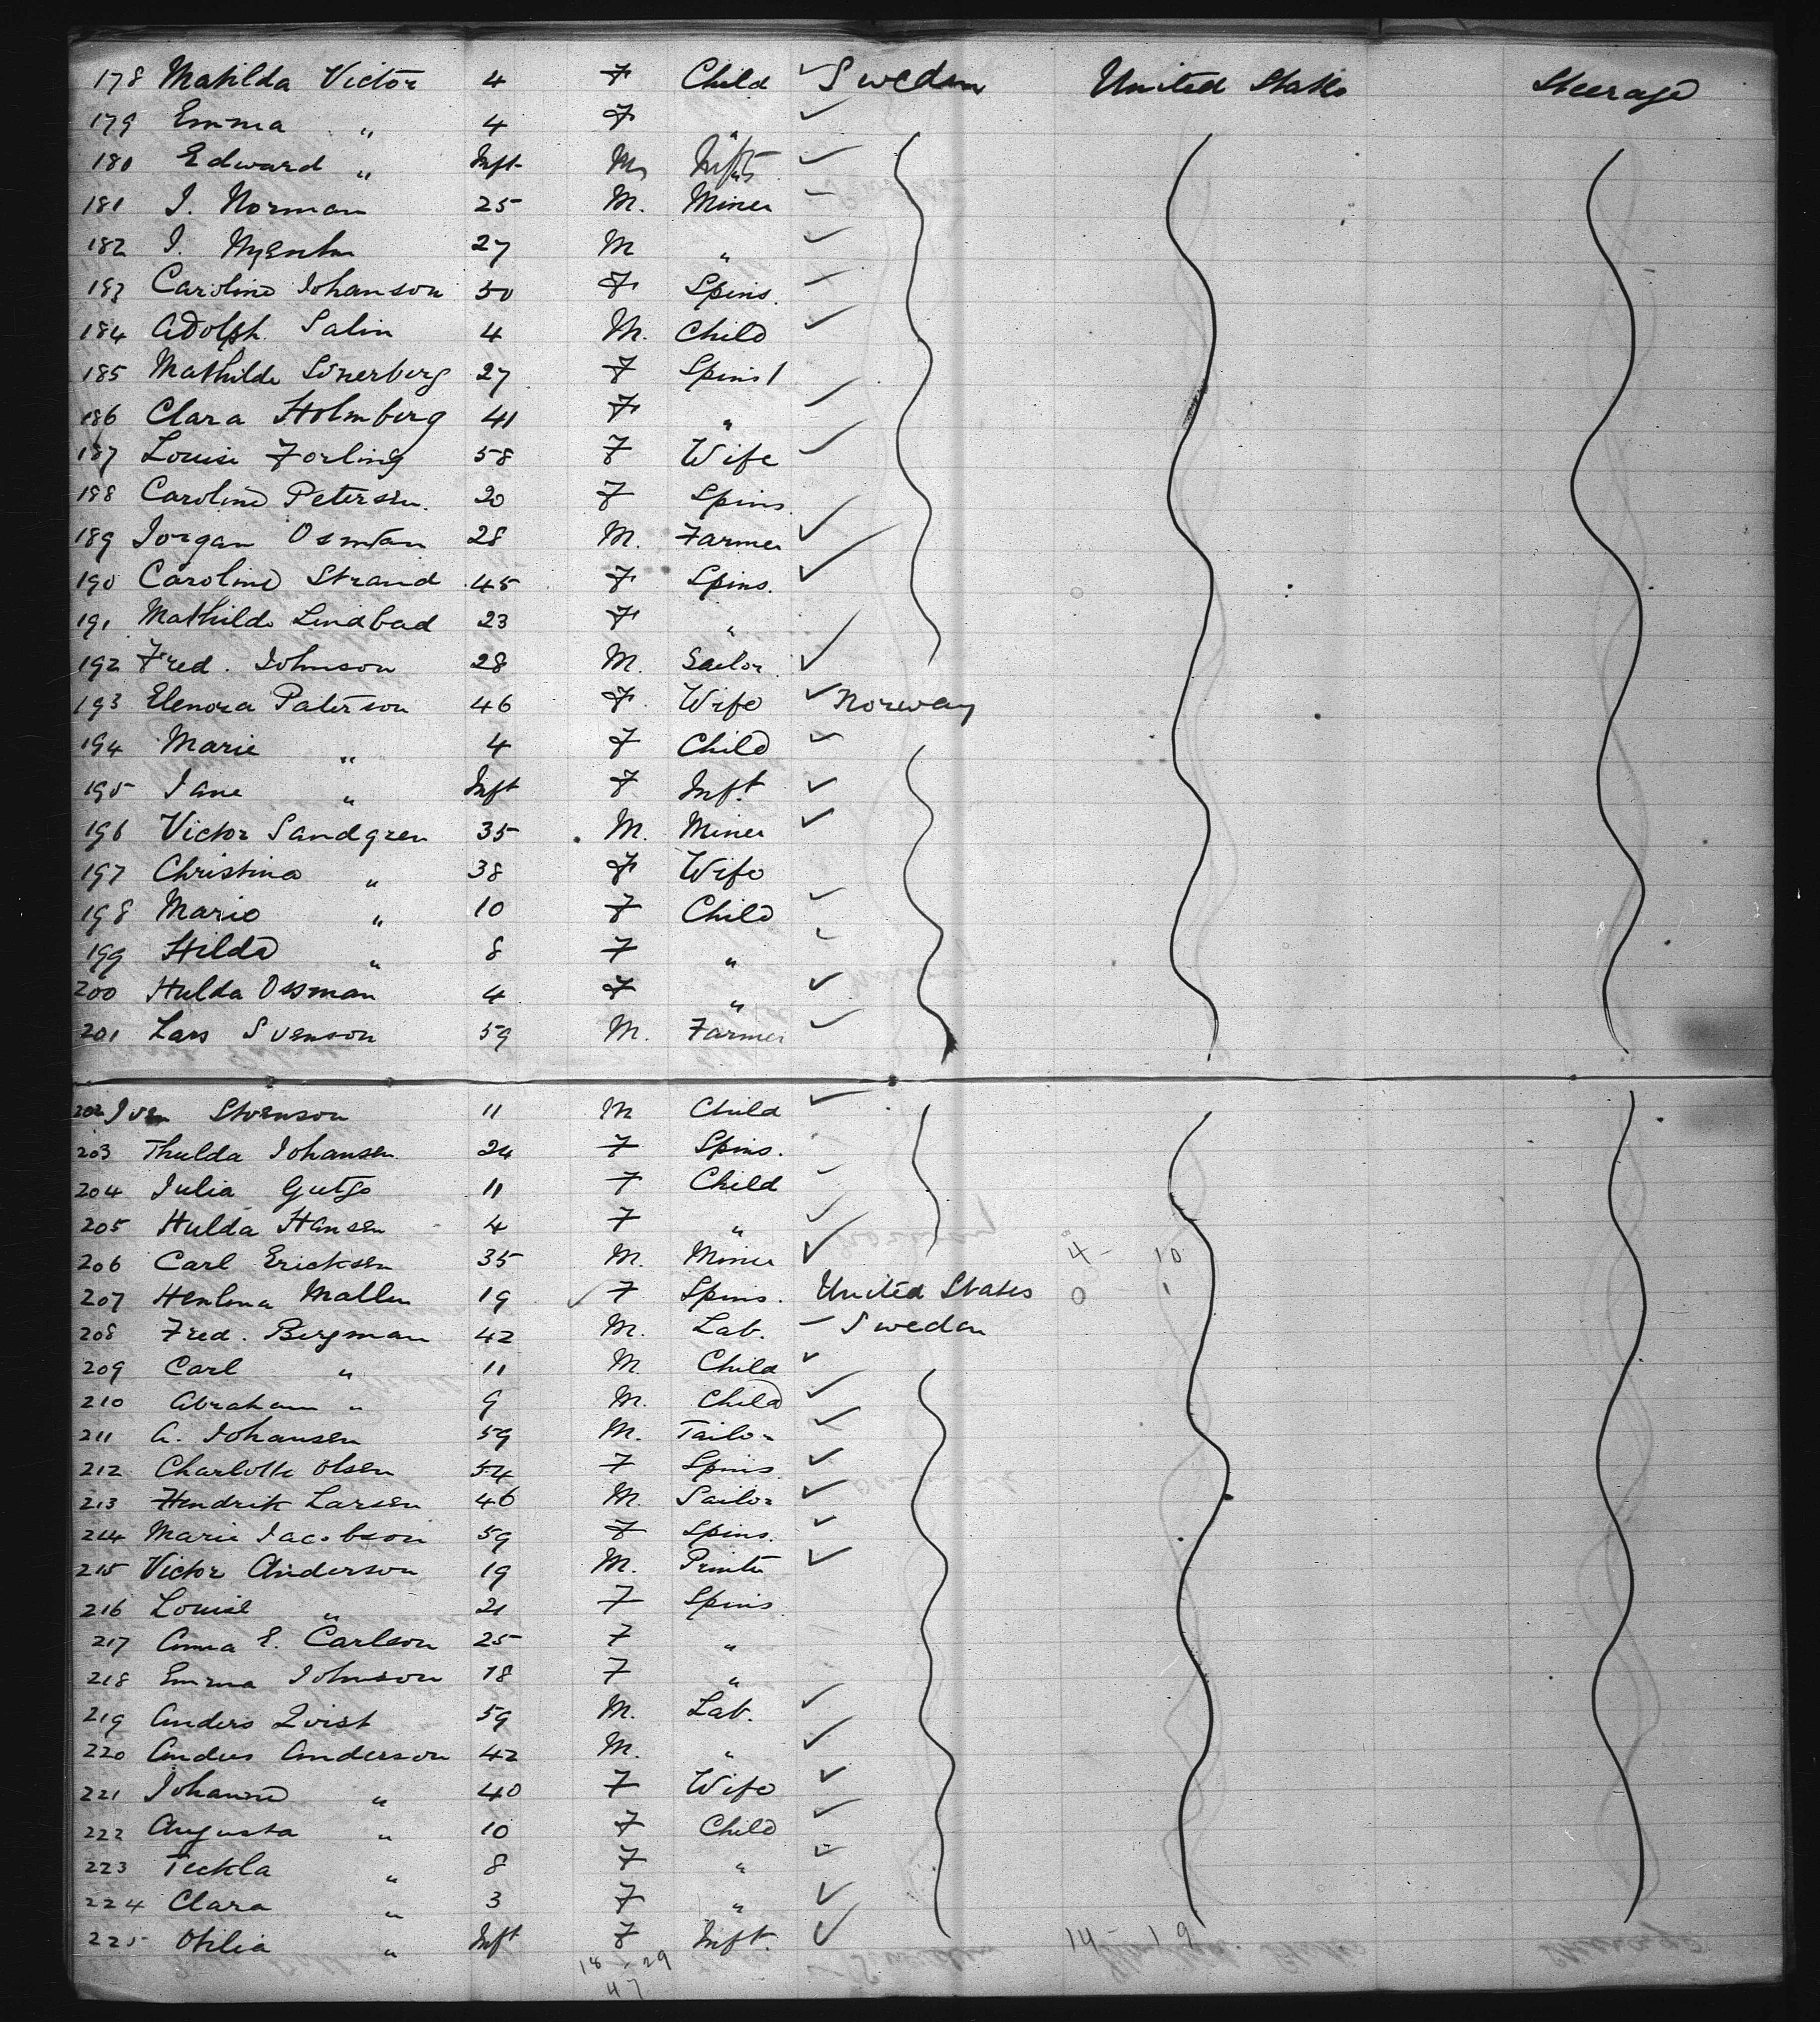 178 Matilda Victor 4 F Child ✓ Sweden United States Steerage
179 Emma " 4 F " ✓
180 Edward " Inft M Inft ✓
181 I. Norman 25 M. Miner
182 I. 27 M " ✓
183 Caroline Johanson 50 F Spins. ✓
184 Adolph Salin 4 M. Child ✓
185 Mathilde Sönerberg 27 F Spinst
186 Clara Holmberg 41 F " ✓
187 Louise Forling 58 F Wife ✓
188 Caroline Petersen. 20 F Spins.
189 Jorgan 28 M. Farmer ✓
190 Caroline Strand 45 F Spins. ✓
191 Mathilde Lindbad 23 F "
192 Fred. Johnson 28 M. Sailor ✓
193 Elenora Paterson 46 F. Wife ✓ Norway
194 Marie " 4 F Child ✓
195 Jane " Inft F Inft. ✓
196 Victor Sandgren 35 M. Miner ✓
197 Christina " 38 F Wife
198 Marie " 10 F Child ✓
199 Hilda " 8 F " ✓
200 Hulda Ossman 4 F " ✓
201 Lars Svenson 59 M. Farmer ✓
202 11 M Child ✓
203 Thulda Johansen 24 F Spins.
204 Julia 11 F Child
205 Hulda Hansen 4 F " ✓
206 Carl Ericksen 35 M. Miner ✓ 4 - 10
207 19 ✓ F Spins. United States 0 1
208 Fred. Bergman 42 M. Lab. – Sweden
209 Carl " 11 M. Child ✓
210 Abraham " 9 M. Child ✓
211 A. Johansen 59 M. Tailor ✓
212 Charlotte Olsen 54 F Spins ✓
213 Hendrik Larsen 46 M. Sailor ✓
214 Marie Jacobson 59 F Spins. ✓
215 Victor Anderson 19 M. Printer ✓
216 Louise " 21 F Spins
217 Anna E. Carlson 25 F "
218 Emma Johnson 18 F "
219 Anders Qvist 59 M. Lab. ✓
220 Anders Anderson 42 M. " ✓
221 Johanne " 40 F Wife ✓
222 Augusta " 10 F Child ✓
223 Teckla " 8 F " ✓
224 Clara " 3 F " ✓
225 Otilia " Inft F Inft. ✓ 14 - 19
18 , 29
47